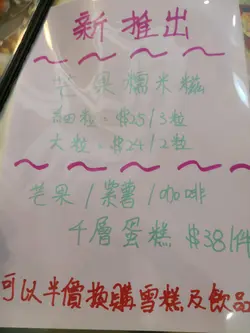 新推出
芒果糯米糍
細粒：$25/3粒
大粒：$24/2粒
芒果/紫薯/咖啡
4層蛋糕 $38/件
可以半價換購雪糕及飲品